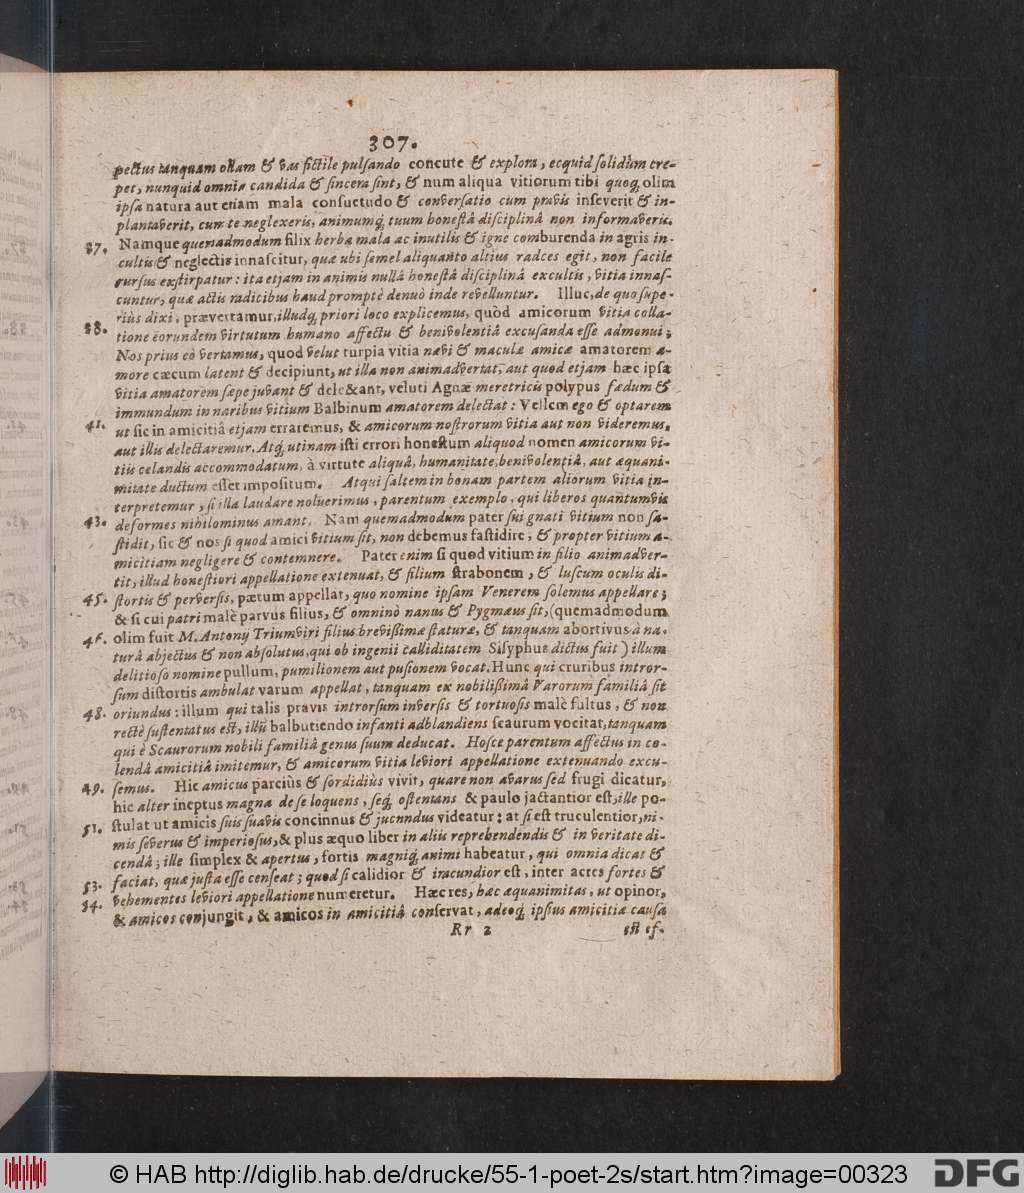 307.
pectus tanquam ollam & vas fictile pulsando concute & explora, ecquid solidùm cre-
pet, nunquid omnia candida & sincera sint, & num aliqua vitiorum tibi quoq; olim
ipsa natura aut etiam mala consuetudo & conversatio cum pravis inseverit & in-
plantaverit, cum te neglexeris, animumq; tuum honestâ disciplinâ non informaveris.
37. Namque quemadmodum filix herba mala ac inutilis & igne comburenda in agris in-
cultis & neglectis innascitur, quæ ubi semel aliquanto altius radces egit, non facile
rursus exstirpatur: ita etjam in animis nullâ honestâ disciplinâ excultis, vitia innas-
cuntur, quæ actis radicibus haud promptè denuò inde revelluntur. Illuc, de quo supe-
riùs dixi, prævertamur, illudq; priori loco explicemus, quòd amicorum vitia colla-
38. tione eorundem virtutum humano affectu & benivolentiâ excusanda esse admonui;
Nos prius eò vertamus, quod velut turpia vitia nævi & maculæ amicæ amatorem a-
more cæcum latent & decipiunt, ut illa non animadvertat, aut quod etjam hæc ipsa
vitia amatorem sæpe juvant & dele&ant, veluti Agnæ meretricis polypus fœdum &
immundum in naribus vitium Balbinum amatorem delectat: Vellem ego & optarem
41. ut sic in amicitiâ etjam erraremus, & amicorum nostrorum vitia aut non videremus,
aut illis delectaremur. Atq; utinam isti errori honestum aliquod nomen amicorum vi-
tiis celandis accommodatum, à virtute aliquâ, humanitate, benivolentiâ, aut æquani-
mitate ductum esset impositum. Atqui saltem in bonam partem aliorum vitia in-
terpretemur, si illa laudare noluerimus, parentum exemplo, qui liberos quantumvis
43. deformes nihilominus amant. Nam quemadmodum pater sui gnati vitium non fa-
stidit, sic & nos si quod amici vitium sit, non debemus fastidire, & propter vitium a-
micitiam negligere & contemnere. Pater enim si quod vitium in filio animadver-
tit, illud honestiori appellatione extenuat, & filium strabonem, & luscum oculis di-
45. stortis & perversis, pætum appellat, quo nomine ipsam Venerem solemus appellare;
& si cui patri malè parvus filius, & omninò nanus & Pygmæus sit, (quemadmodum
46. olim fuit M. Antonij Triumviri filius brevißimæ staturæ, & tanquam abortivus à na-
turâ abjectus & non absolutus, qui ob ingenii calliditatem Sisyphus dictus fuit) illum
delitioso nomine pullum, pumilionem aut pusionem vocat. Hunc qui cruribus intror-
sum distortis ambulat varum appellat, tanquam ex nobilißimâ Varorum familiâ sit
48. oriundus: illum qui talis pravis introrsum inversis & tortuosis malè fultus, & non
rectè sustentatus est, illû balbutiendo infanti adblandiens scaurum vocitat, tanquam
qui è Scaurorum nobili familiâ genus suum deducat. Hosce parentum affectus in co-
lendâ amicitiâ imitemur, & amicorum vitia leviori appellatione extenuando excu-
49. semus. Hic amicus parciùs & sordidiùs vivit, quare non avarus sed frugi dicatur,
hic alter ineptus magna de se loquens, seq; ostentans & paulo jactantior est, ille po-
51. stulat ut amicis suis suavis concinnus & jucnndus videatur: at si est truculentior, ni-
mis severus & imperiosus, & plus æquo liber in aliis reprehendendis & in veritate di-
cendâ; ille simplex & apertus, fortis magniq; animi habeatur, qui omnia dicat &
53. faciat, quæ justa esse censeat; quod si calidior & iracundior est, inter acres fortes &
54. vehementes leviori appellatione numeretur. Hæc res, hæc æquanimitas, ut opinor,
& amicos conjungit, & amicos in amicitiâ conservat, adeoq; ipsius amicitiæ causa
Rr 2 est ef-
© HAB http://diglib.hab.de/drucke/55-1-poet-2s/start.htm?image=00323
DFG